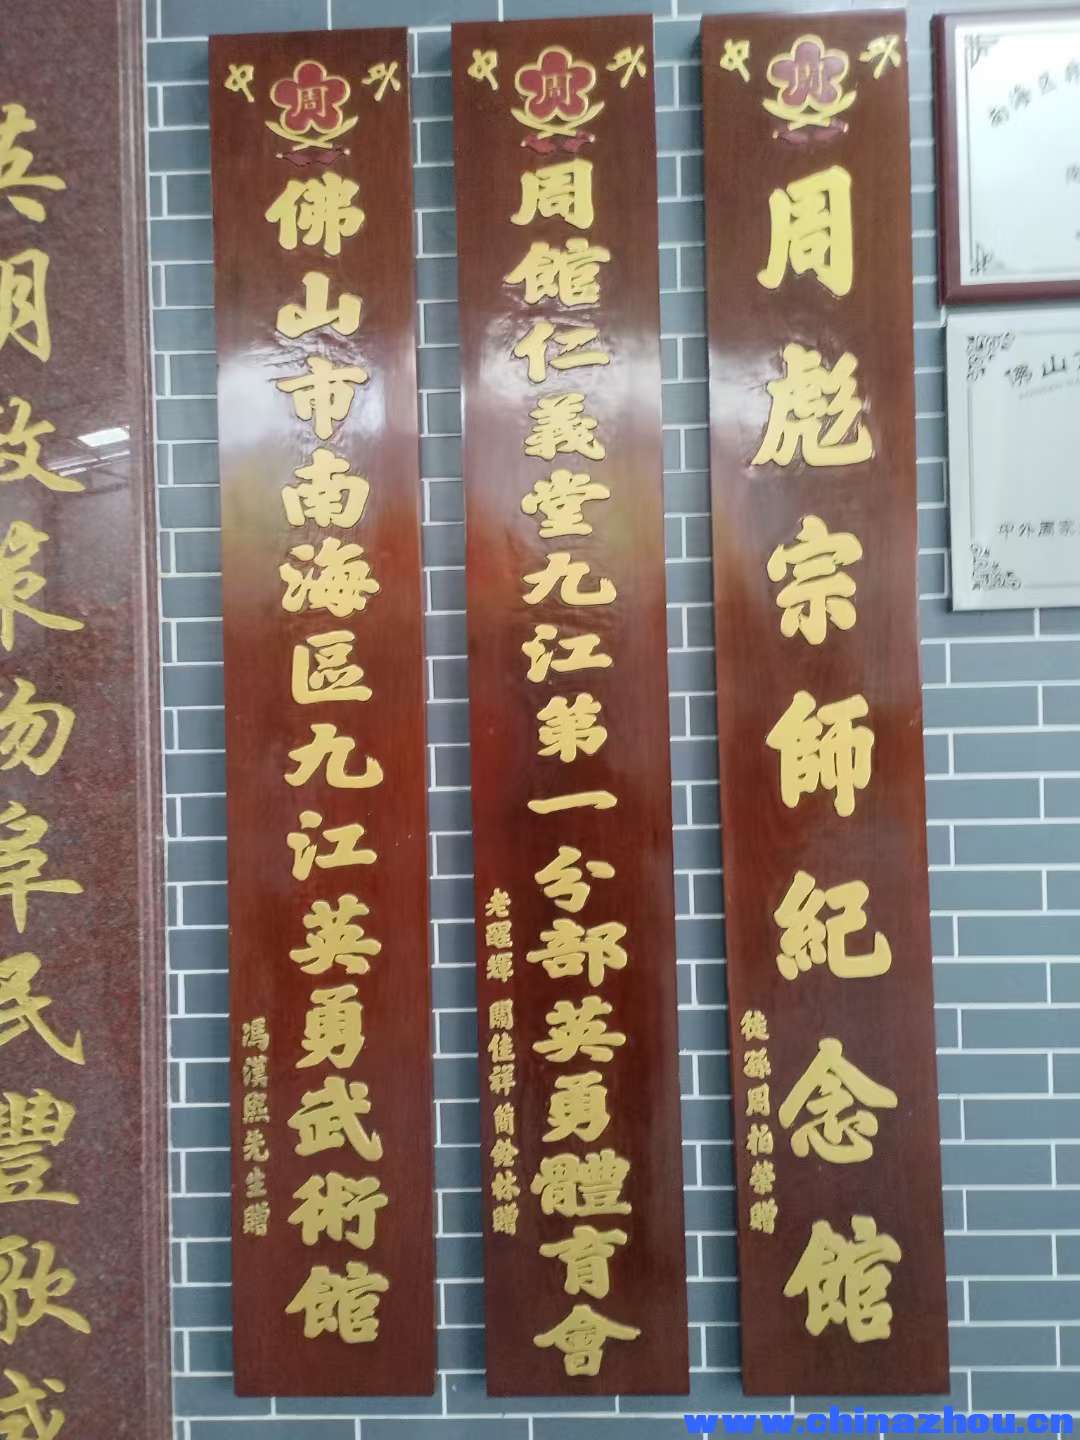 南海区
佛山
中外周家
中 周 外
周彪宗師紀念館
徒孫周柏榮贈
中 周 外
周館仁義堂九江第一分部英勇體育會
老醒輝 關佳祥 簡銓林贈
中 周 外
佛山市南海區九江英勇武術館
馮漢熙先生贈
英明政策物阜民豐歌
www.chinazhou.cn